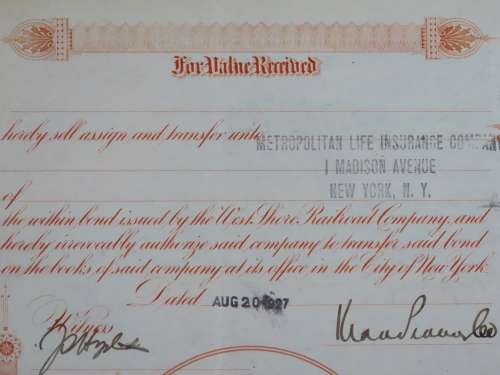 For Value Received
hereby sell assign and transfer unto METROPOLITAN LIFE INSURANCE COMPANY
1 MADISON AVENUE
of NEW YORK, N. Y.
the within bond issued by the West Shore Railroad Company, and
hereby irrevocably authorize said company to transfer said bond
on the books of said company at its office in the City of New York.
Dated AUG 20 1927
Witness